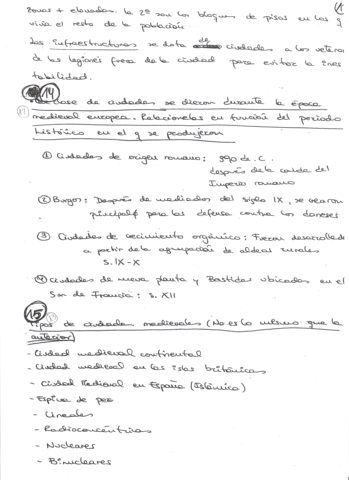 zonas + elevadas. la 2ª son los bloques de pisos en los q
vivía el resto de la población
Las infraestructuras se dota de ciudades a los veteranos
de las legiones fuera de la ciudad para evitar la ines
tabilidad.
14
base de ciudades se dieron durante la época
medieval europea. Relacionelas en función del periodo
histórico en el q se produjeron
① Ciudades de origen romano: 390 d. C.
después de la caida del
Imperio romano
② Burgos: Después de mediados del siglo IX, se crearon
principal para las defensa contra los daneses
③ Ciudades de crecimiento orgánico: Fueron desarrolladas
a partir de la agrupación de aldeas rurales
S. IX-X
④ Ciudades de nueva planta y Bastidas ubicadas en el
Sur de Francia: S. XII
15
Tipos de ciudades medievales (No es lo mismo que la
anterior)
- Ciudad medieval continental
- Ciudad medieval en las islas británicas
- Ciudad Medieval en España (Islámica)
- Espina de pez
- Lineales
- Radioconcéntricas
- Nucleares
- Binucleares